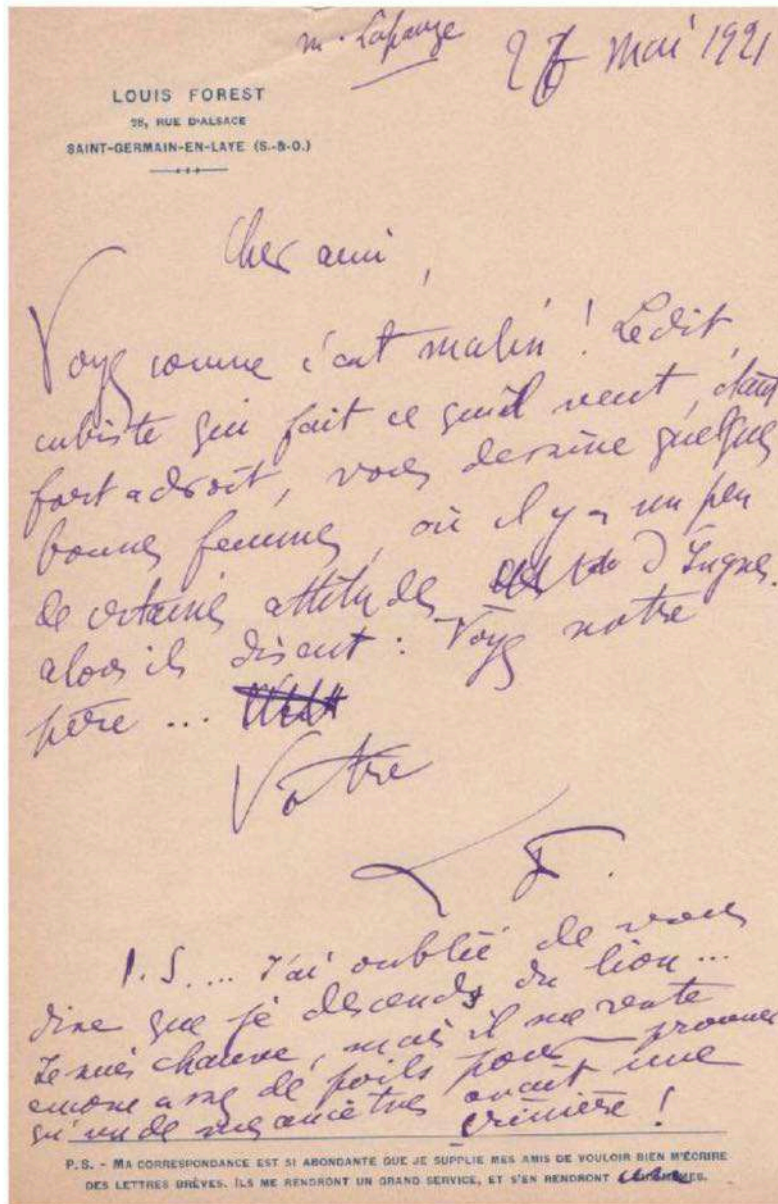 m. Lapauze
27 Mai 1921
LOUIS FOREST
98, RUE D'ALSACE
SAINT-GERMAIN-EN-LAYE (S.-&-O.)
Cher ami,
Voyez comme c'est malin ! Ledit,
cubiste qui fait ce qu'il veut, étant
fort adroit, vous dessine quelques
bonnes femmes, où il y a un peu
de certaines attitudes d'Ingres.
alors ils disent : Voyez notre
père ...
Votre
L F.
P.S.... J'ai oublié de vous
dire que je descends du lion...
Je suis chauve, mais il me reste
encore assez de poils pour prouver
qu'un de mes ancêtres avait une
crinière !
P.S. - MA CORRESPONDANCE EST SI ABONDANTE QUE JE SUPPLIE MES AMIS DE VOULOIR BIEN M'ÉCRIRE
DES LETTRES BRÈVES. ILS ME RENDRONT UN GRAND SERVICE, ET S'EN RENDRONT